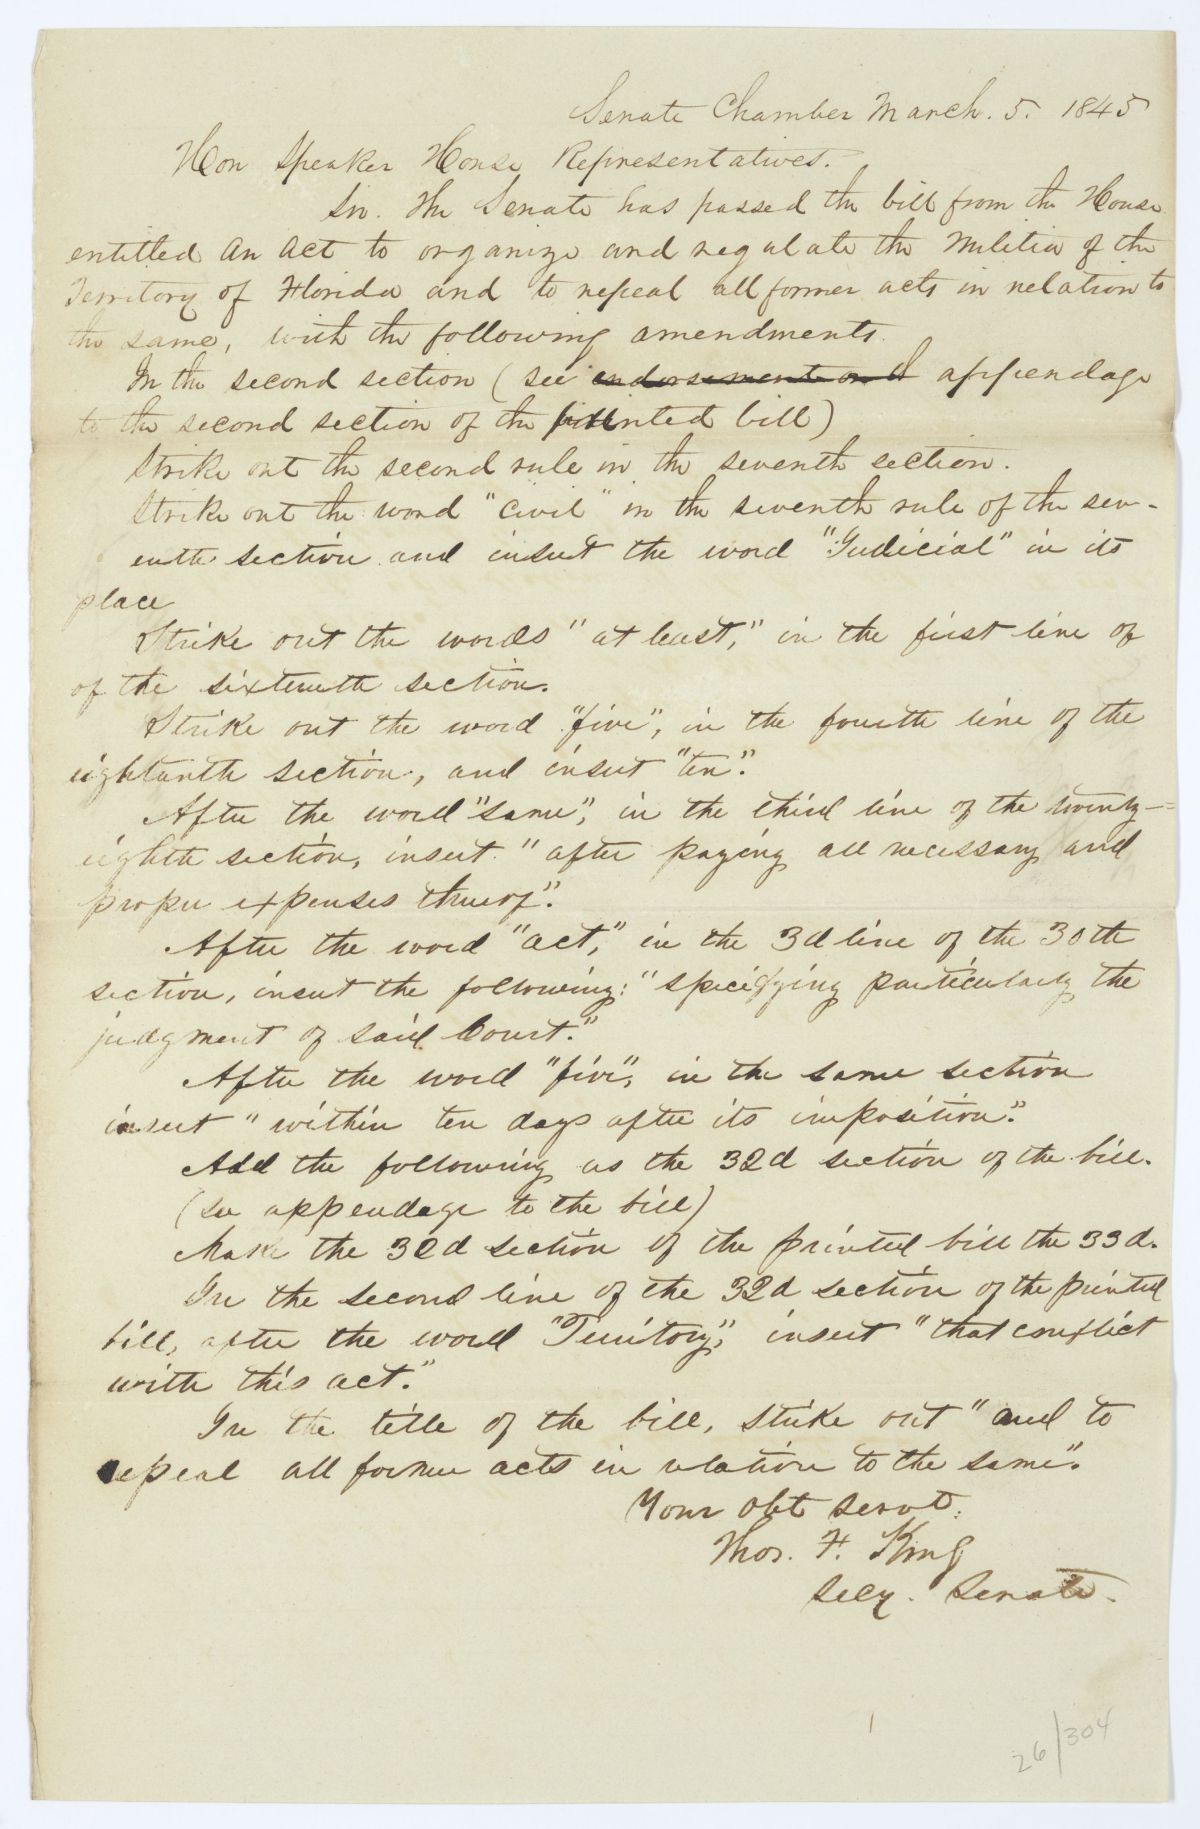 Senate Chamber March. 5. 1845
Hon Speaker House Representatives.
Sir. The Senate has passed the bill from the House
entitled An Act to organize and regulate the Militia of the
Territory of Florida and to repeal all former acts in relation to
the same, with the following amendments.
In the second section (see endorsement on d appendage
to the second section of the printed bill)
Strike out the second rule in the seventh section.
Strike out the word "civil" in the seventh rule of the sev-
enth section and insert the word "Judicial" in its
place
Strike out the words "at least," in the first line of
of the sixteenth section.
Strike out the word "five", in the fourth line of the
eighteenth section, and insert "ten".
After the word "same", in the third line of the twenty-
eighth section, insert "after paying all necessary and
proper expenses thereof".
After the word "act," in the 3d line of the 30th
section, insert the following: "specifying particularly the
judgment of said Court."
After the word "five", in the same section
insert "within ten days after its imposition".
Add the following as the 32d section of the bill.
(see appendage to the bill)
Make the 32d section of the printed bill the 33d.
In the second line of the 32d section of the printed
bill, after the word "Territory", insert "that conflict
with this act."
In the title of the bill, strike out "and to
repeal all former acts in relation to the same".
Your obt servt.
Thos. F. King
Secy. Senate.
26/304